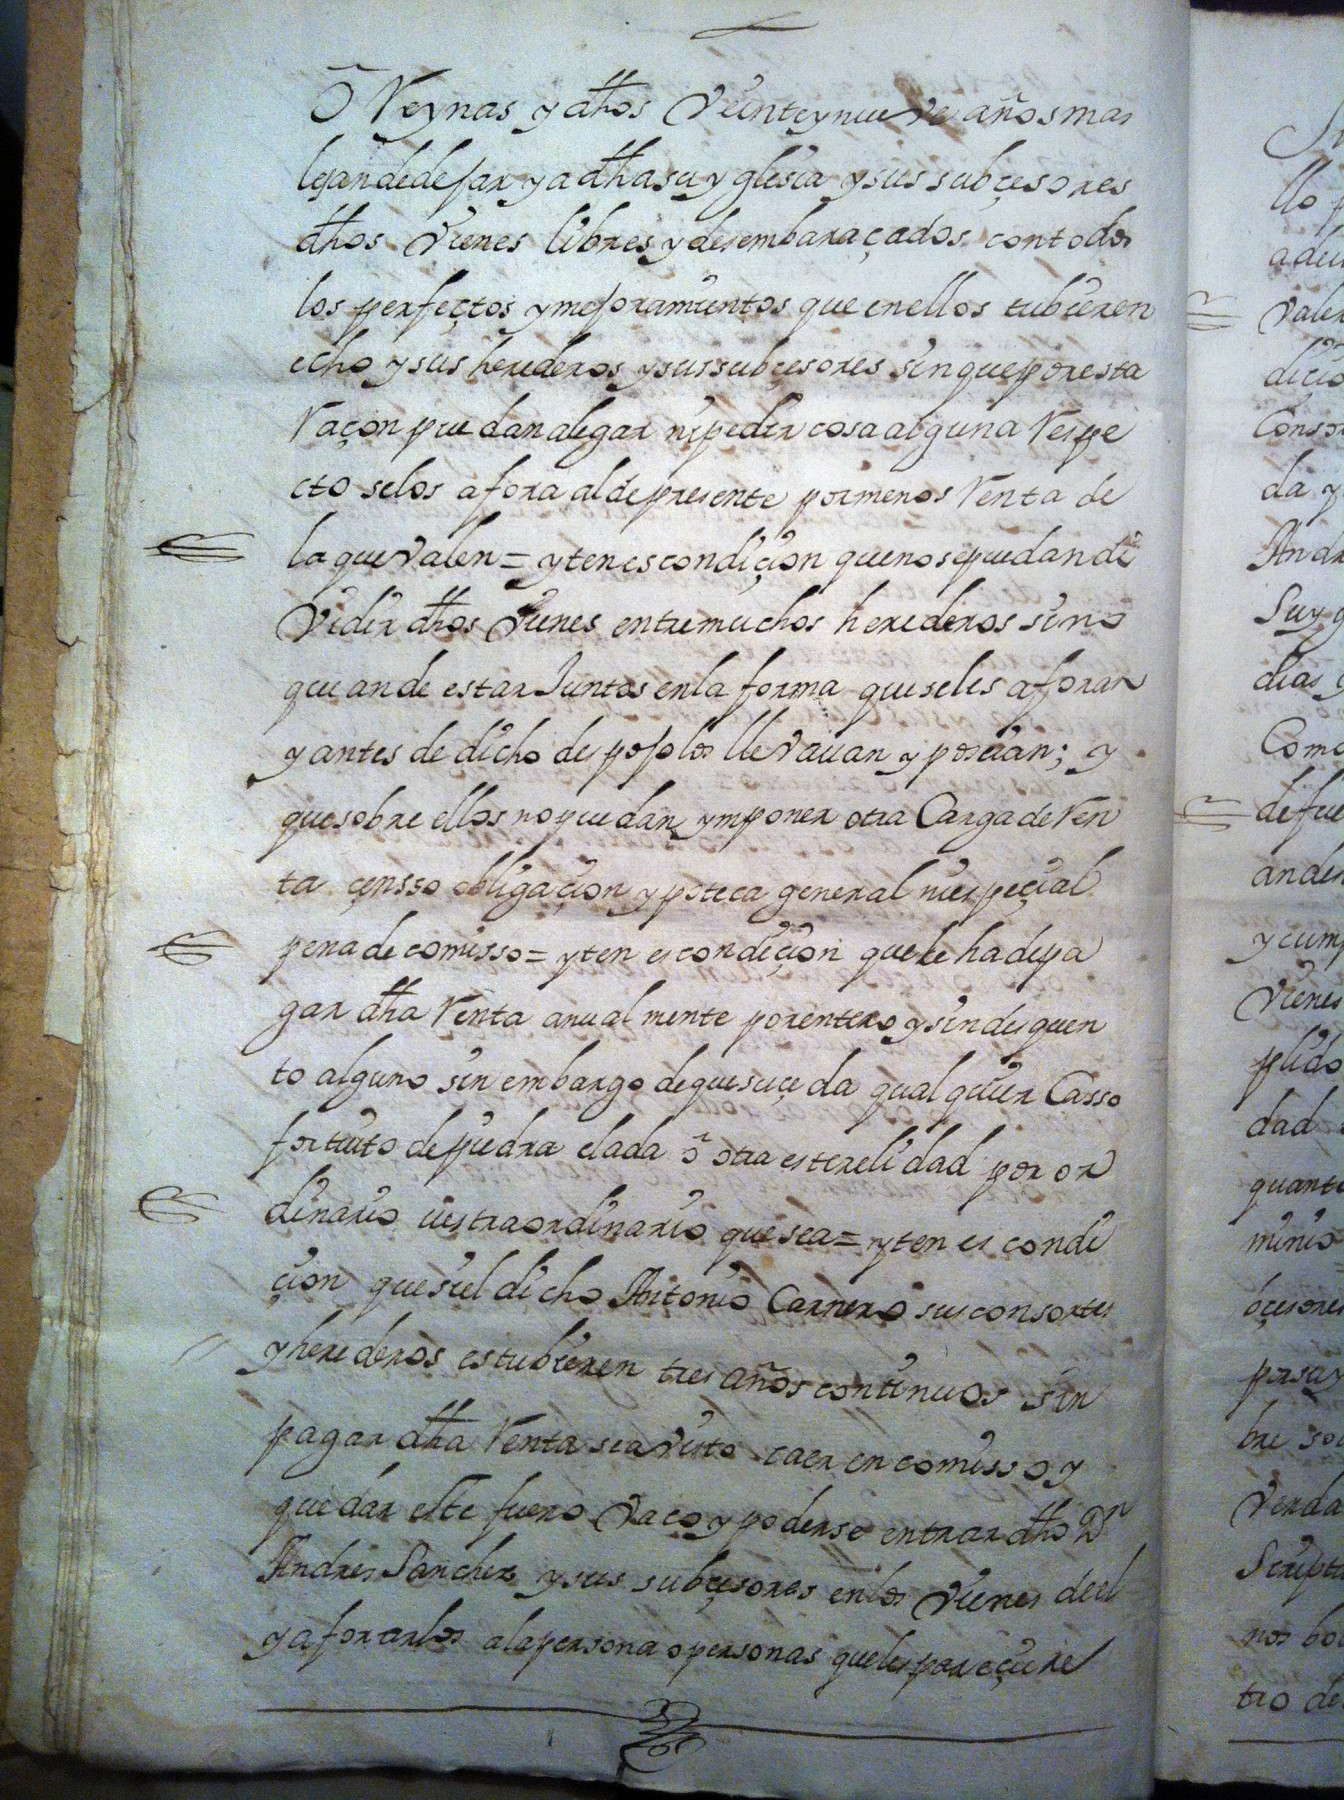 ô Reynas y dhos Veinte y nueve años mas
le an de dejar y a dha su yglesia y sus subçesores
dhos Vienes libres y desembaraçados con todos
los perfectos y mejoramientos que en ellos tubieren
echo y sus herederos y sus subçesores sin que por esta
Raçon puedan alegar ni pedir cosa alguna Respe
cto se los afora al de presente por menos Renta de
la que valen = yten es condiçion que no se puedan di
Vidir dhos Vienes entre muchos herederos sino
que an de estar Juntos en la forma que se les aforan
y antes de dicho depojo los llevauan y poseian; y
que sobre ellos no puedan ymponer otra Carga de Ren
ta çensso obligaçion ypoteca general ni espeçial
pena de comisso = yten es condiçion que le ha de pa
gar dha Renta anualmente por entero y sin desquen
to alguno sin embargo de que suçeda qualquier Casso
fortuito de piedra elada ô otra esterelidad por or
dinario u estraordinario que sea = yten es condi
çion que si el dicho Antonio Carnero sus consortes
y herederos estubieren tres años continuos sin
pagar dha Renta sea visto caer en comisso y
quedar este fuero Vaco y poderse entrar dho Dn
Andres Sanchez y sus subçesores en los Vienes de el
y aforarlos a la persona o personas que les pareçiere
llo
Valer
diçio
Consor
da y
Andr
Su y
dias
Como
de fue
y cump
Vienes
plido
dad
quant
minio
bçesores
por su y
bre
Verda
Scriptu
tro de